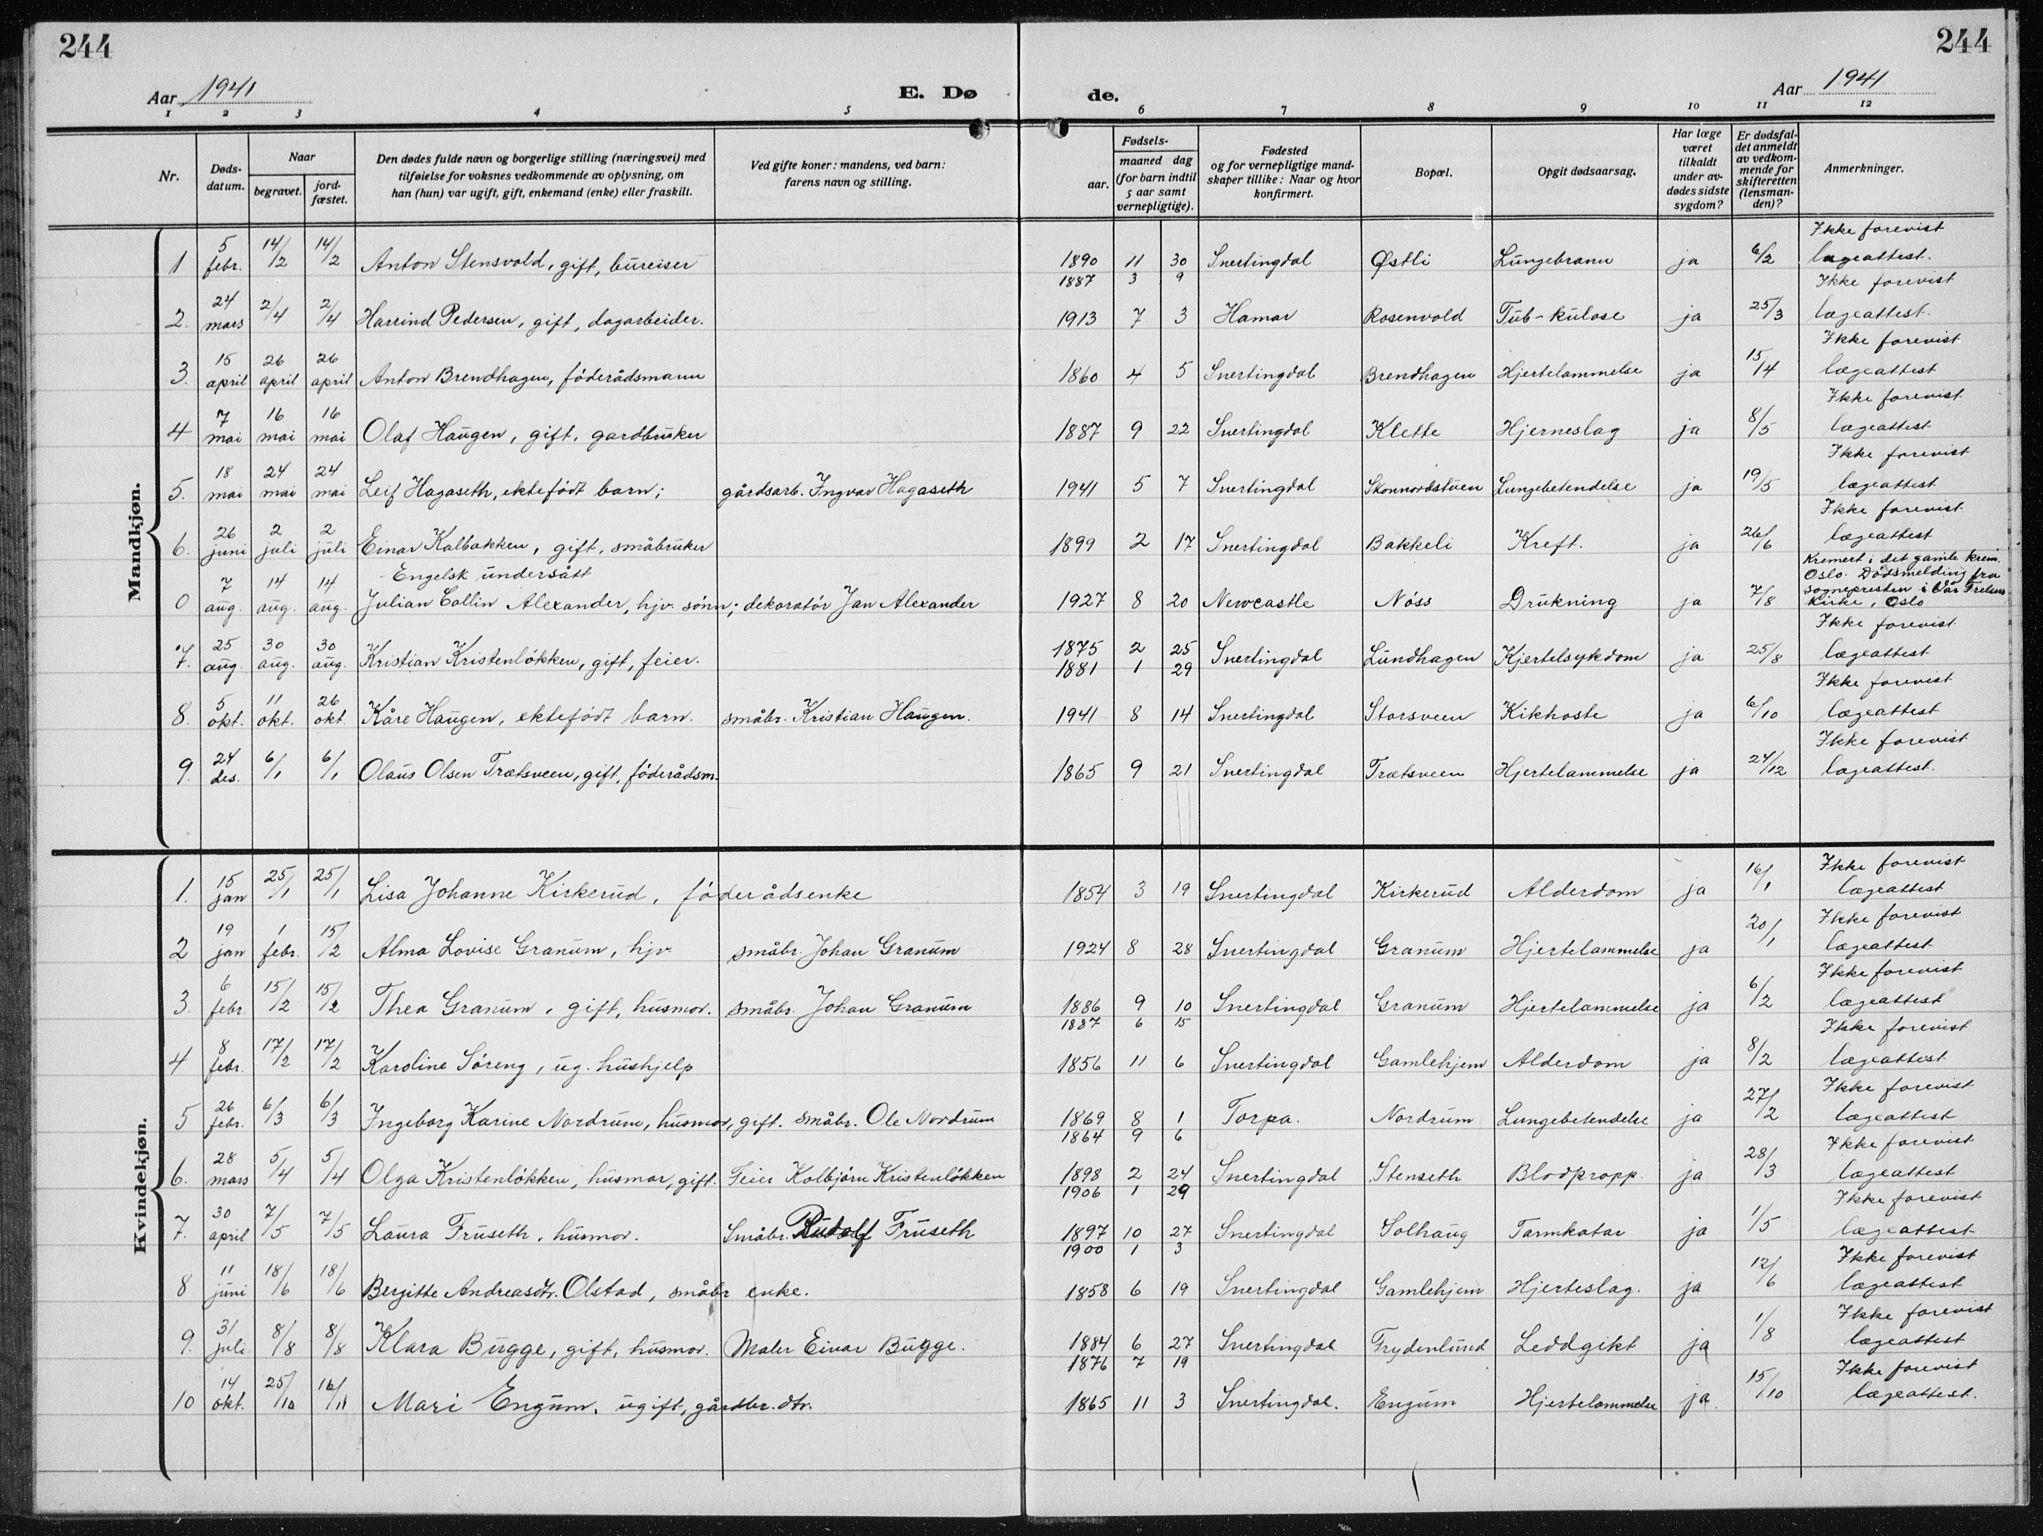 244
244
Aar 1941
E. Dø
de.
Aar 1941
1 2 3 4 5 6 7 8 9 10 11 12
Nr.
Døds-
datum.
Naar
begravet.
jord-
fæstet.
Den dødes fulde navn og borgerlige stilling (næringsvei) med
tilføielse for voksnes vedkommende av oplysning, om
han (hun) var ugift, gift, enkemand (enke) eller fraskilt.
Ved gifte koner: mandens, ved barn:
farens navn og stilling.
Fødsels-
aar.
maaned dag
(for barn indtil
5 aar samt
vernepligtige).
Fødested
og for vernepligtige mand-
skaper tillike: Naar og hvor
konfirmert.
Bopæl.
Opgit dødsaarsag.
Har læge
været
tilkaldt
under av-
dødes sidste
sygdom?
Er dødsfal-
det anmeldt
av vedkom-
mende for
skifteretten
(lensman-
den)?
Anmerkninger.
Mandkjøn.
1 5 febr. 14/2 14/2 Anton Stensvold, gift, bureiser 1890 11 30 Snertingdal Østli Lungebrann ja 6/2 Ikke forevist lægeattest.
1887 3 9
2. 24 mars 2/4 2/4 Harrind Pedersen, gift, dagarbeider. 1913 7 3 Hamar Rosenvold Tub-kulose ja 25/3 Ikke forevist lægeattest.
3. 15 april 26 april 26 april Anton Brendhagen, föderådsmann 1860 4 5 Snertingdal Brendhagen Hjertelammelse ja 15/4 Ikke forevist lægeattest
4 7 mai 16 mai 16 mai Olaf Haugen, gift, gardbruker 1887 9 22 Snertingdal Klette Hjerneslag ja 8/5 Ikke forevist lægeattest
5. 18 mai 24 mai 24 mai Leif Hagaseth, ektefödt barn; gårdsarb. Ingvar Hagaseth 1941 5 7 Snertingdal Skonnordstuen Lungebetendelse ja 19/5 Ikke forevist lægeattest
6. 26 juni 2 juli 2 juli Einar Kalbakken, gift, småbruker 1899 2 17 Snertingdal Bakkeli Kreft. ja 26/6 Ikke forevist lægeattest
Engelsk undersått
0 7 aug. 14 aug. 14 aug. Julian Collin Alexander, hjv. sönn; dekoratör Jan Alexander 1927 8 20 Newcastle Nöss Drukning ja 7/8 Kremert i det gamle krem. Oslo. Dödsmelding fra sognepresten i Vår Frelsers Kirke, Oslo
7. 25 aug. 30 aug. 30 aug. Kristian Kristenlökken, gift, feier. 1875 2 25 Snertingdal Lundhagen Kjertelsykdom ja 25/8 Ikke forevist lægeattest
1881 1 29
8. 5 okt. 11 okt. 26 okt. Kåre Haugen, ektefödt barn. småbr. Kristian Haugen. 1941 8 14 Snertingdal Storsveen Kikhoste ja 6/10 Ikke forevist lægeattest
9. 24 des. 6/1 6/1 Olaus Olsen Trætsveen, gift, föderådsm. 1865 9 21 Snertingdal Trætsveen Hjertelammelse ja 24/12 Ikke forevist lægeattest.
Kvindekjøn.
1. 15 jan 25/1 25/1 Lisa Johanne Kirkerud, föderådsenke 1854 3 19 Snertingdal Kirkerud Alderdom ja 16/1 Ikke forevist lægeattest
2 19 jan 1 febr. 15/2 Alma Lovise Granum, hjv. småbr. Johan Granum 1924 8 28 Snertingdal Granum Hjertelammelse ja 20/1 Ikke forevist lægeattest
3. 6 febr 15/2 15/2 Thea Granum, gift, husmor. småbr. Johan Granum 1886 9 10 Snertingdal Granum Hjertelammelse ja 6/2 Ikke forevist lægeattest
1887 6 15
4 8 febr. 17/2 17/2 Karoline Söreng, ug. hushjelp 1856 11 6 Snertingdal Gamlehjem Alderdom ja 8/2 Ikke forevist lægeattest
5 26 febr. 6/3 6/3 Ingeborg Karine Nordrum, husmor, gift. småbr. Ole Nordrum 1869 8 1 Torpa. Nordrum Lungebetendelse ja 27/2 Ikke forevist lægeattest
1864 9 6
6. 28 mars 5/4 5/4 Olga Kristenlökken, husmor, gift. Feier Kolbjörn Kristenlökken 1898 2 24 Snertingdal Stenseth Blodpropp. ja 28/3 Ikke forevist lægeattest
1906 1 29
7. 30 april 7/5 7/5 Laura Fruseth, husmor. Småbr. Rudolf Fruseth 1897 10 27 Snertingdal Solhaug Tarmkatar ja 1/5 Ikke forevist lægeattest
1900 1 3
8 11 juni 18/6 18/6 Bergitte Andreasdtr. Olstad, småbr enke. 1858 6 19 Snertingdal Gamlehjem Hjerteslag. ja 12/6 Ikke forevist lægeattest
9. 31 juli 8/8 8/8 Klara Bugge, gift, husmor. Maler Einar Bugge. 1884 6 27 Snertingdal Frydenlund Leddgikt ja 1/8 Ikke forevist lægeattest
1876 7 19
10 14 okt. 25/10 16/11 Mari Engum, ugift, gårdbr. dtr. 1865 11 3 Snertingdal. Engum Hjertelammelse ja 15/10 Ikke forevist lægeattest.